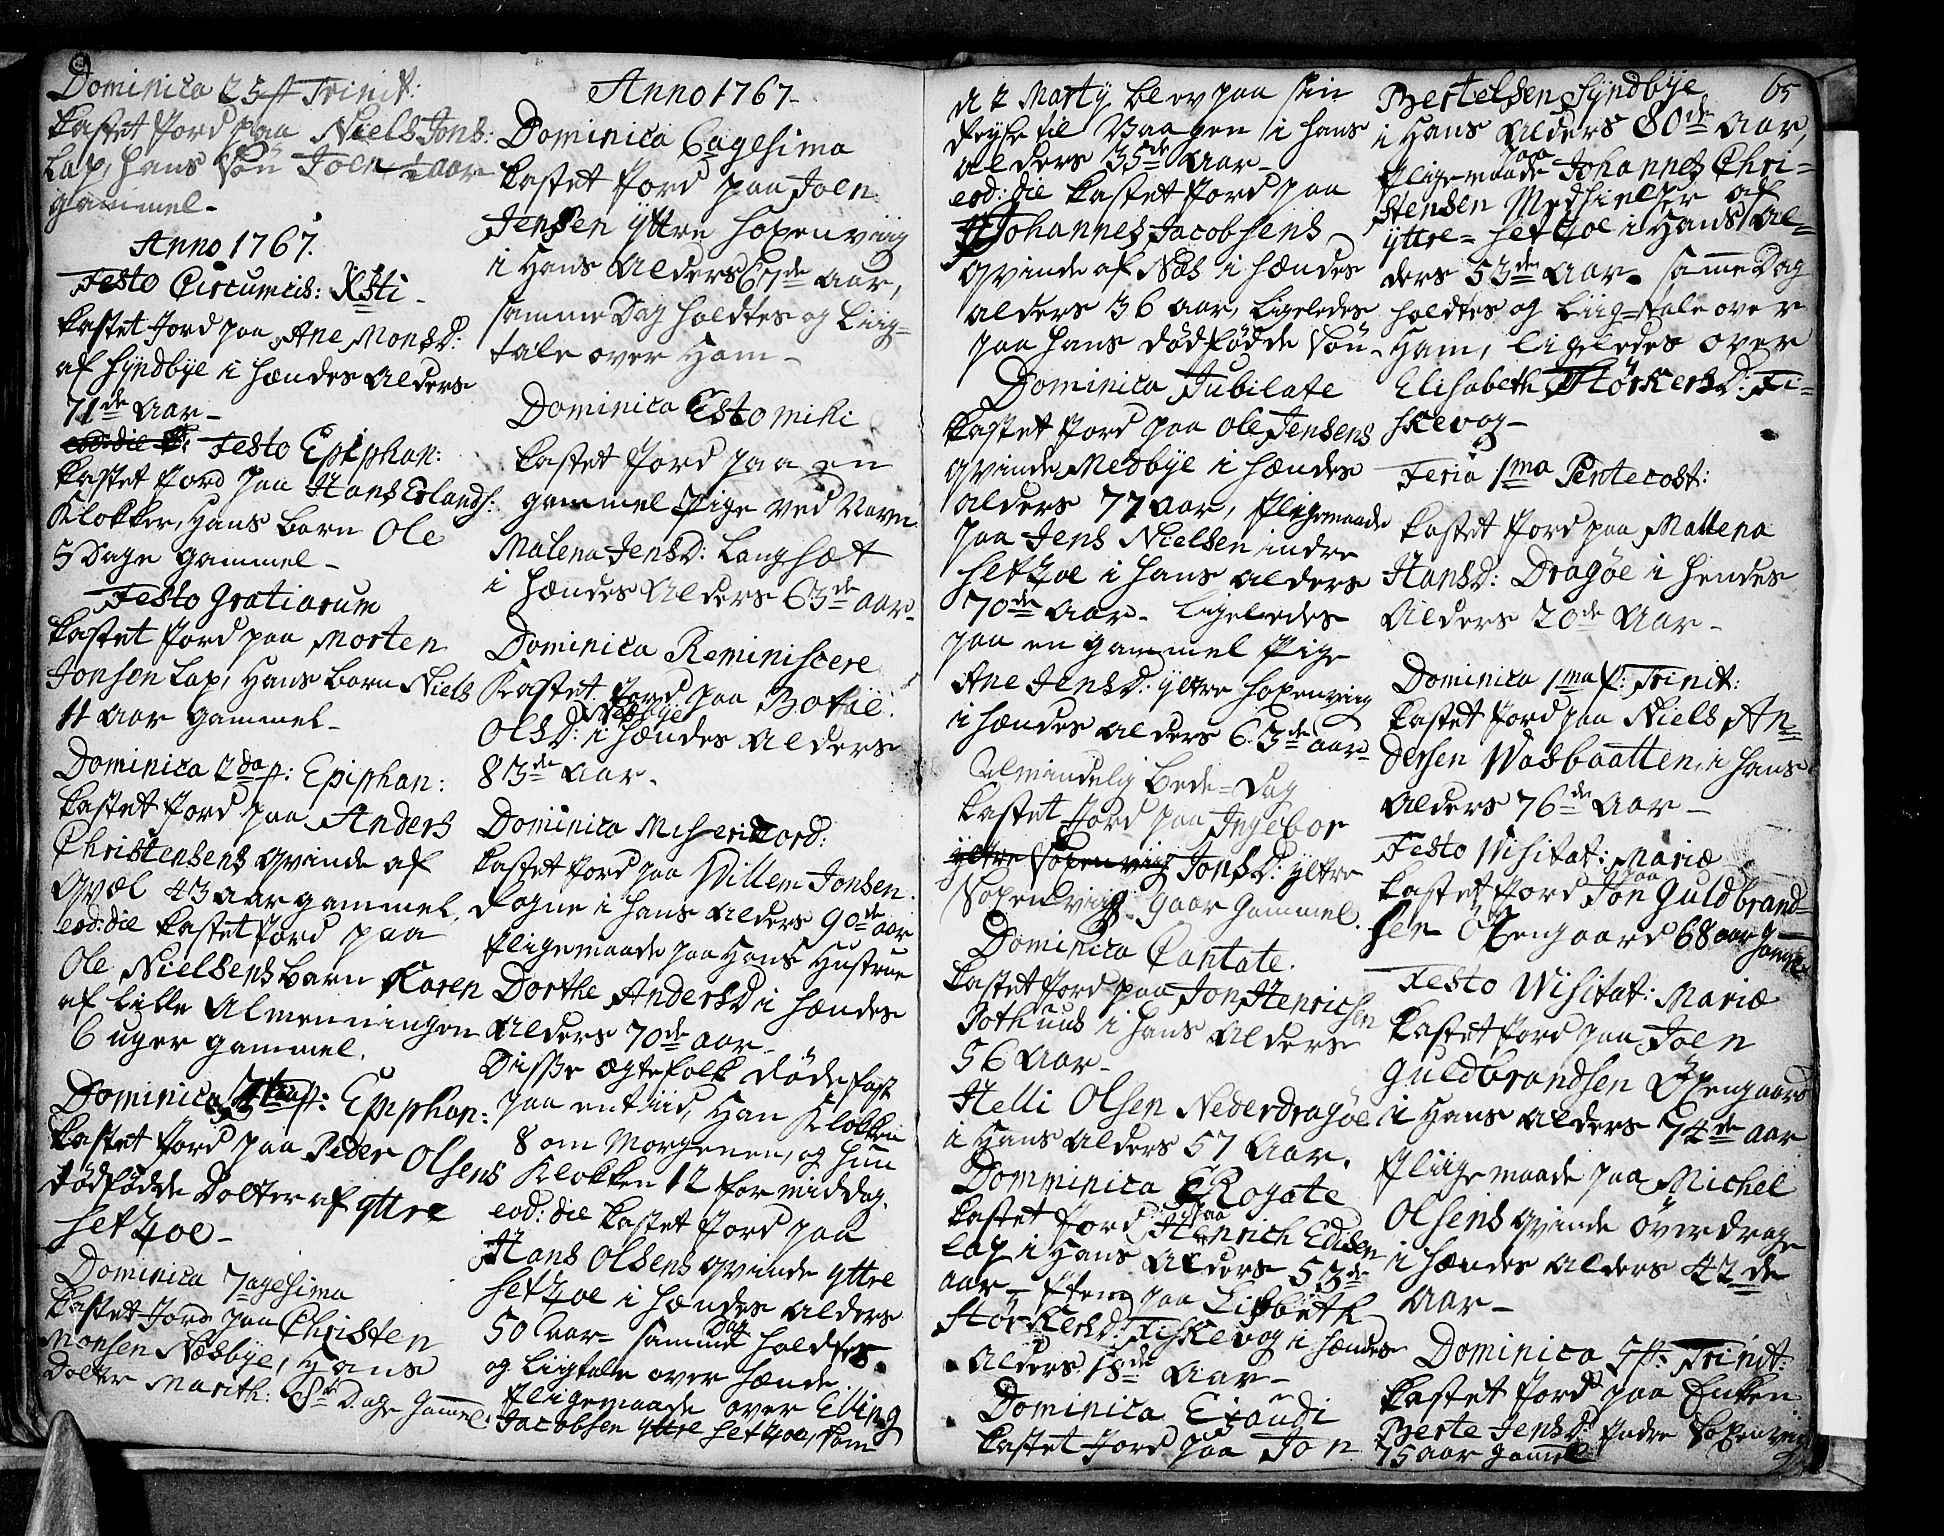 Dominica 25 p Trinit:
kastet Jord paa Niels Jons:
Lap, hans Søn Joen ½ aar
gammel -
Anno 1767.
Festo Circumcis: Xsti -
kastet Jord paa Ane MonsD:
af Syndbye i hændes Alders
71de Aar -
eod: die Festo Epiphan:
kastet Jord paa Hans Erlands:
Klokker, Hans barn Ole
5 Dage gammel -
Festo Gratiarum
kastet Jord paa Morten
Jonsen Lap, Hans barn Niels
11 Aar gammel -
Dominica 2da p: Epiphan:
kastet Jord paa Anders
Christensens qvinde af
Qvæl 43 aar gammel.
eod: die kastet Jord paa
Ole Nielsens barn Karen
af Lille Almenningen
6 uger gammel.
Dominica p: Epiphan:
kastet Jord paa Peder Olsens
dødfødde Dotter af yttre
Hefzoe -
Dominica 7agesima
kastet Jord paa Christen
Monsen Næsbye, Hans
Dotter Marith: 8te Dage gamel.
Anno 1767 -
Dominica 6agesima
kastet Jord paa Joen
Jensen yttre Hopenviig
i Hans Alders 67de Aar,
samme Dag holdtes og Liig-
tale over Ham -
Dominica Estomihi
kastet Jord paa en
gammel Pige ved Navn
Malena JensD: Langsæt
i hændes Alders 63de aar -
Dominica Reminiscere
Kastet Jord paa Botil
Næsbye
OlsD: i hændes Alders
83de Aar -
Dominica Misericord:
kastet Jord paa Willem Jonsen
Fogne i hans Alders 90de aar
Sligemaade paa Hans Hustrue
Dorthe AndersD i hændes
Alders 70de aar -
Disse ægtefolk døde fast
paa en tiid, Han Klokken
8 om Morgenen, og hun
Klokken 12 formiddag.
eod: die kastet Jord paa
Hans Olsens qvinde yttre
Hefzoe i hændes Alders
Dag
50 aar - samme holdtes
og Liigtale over hænde.
Sligemaade over Elling
Jacobsen yttre Hefzoe, som
d 2 Martij blev paa sin
Reyse til Vaagen i hans
Alders 35de Aar -
eod: die kastet Jord paa
Johannes Jacobsens
qvinde af Næs i hændes
alders 36 aar, Ligeledes
paa hans dødfødde Søn -
Dominica Jubilate
kastet Jord paa Ole Jensens
qvinde Medbye i hændes
alders 77 aar, Sligemaade
paa Jens Nielsen indre
Hefzoe i hans alders
70de Aar - Ligeledes
paa en gammel Pige
Ane JensD: yttre Hopenviig
i hændes alders 63de aar -
Almindelig Bede-Dag
kastet Jord paa Ingebor
yttre Hopenviig JonsD: yttre
Hopenviig 9 aar gammel.
Dominica Cantate.
kastet Jord paa Jon Henrichsen
i hans Alders
56 Aar -
Helli Olsen Nederdragøe
i Hans Alders 57 Aar.
Domminica Rogate
kastet Jord paa Henrich
Lap i Hans Alders 53de
aar - paa Lisbeth
StørkersD: Fiskevog i hændes
Alders 18de Aar -
Dominica Exaudi
kastet Jord paa Jon
65
Bertelsen Syndbye
i Hans Alders 80de Aar,
paa
Sligemaade Johannes Chri-
stensen Medhielper af
yttre - Hefzoe i Hans Al-
ders 53de Aar. samme Dag
holdtes og Liig-tale over
Ham, Ligeledes over
Elisabeth StørkersD: Fi-
skevog -
Feria 1ma Pentecost:
kastet Jord paa Mallena
HansD: Dragøe i hendes
Alders 20de Aar -
Dominica 1ma p: Trinit:
kastet Jord paa Niels An-
dersen Wasbaatten, i hans
Alders 76de Aar -
Festo Visitat: Mariæ
paa
kastet Jord Jon Guldbrand-
sen Øxengaard 68 aar
gamel
Festo Wisitat: Mariæ
kastet Jord paa Joen
Guldbrandsen Øxengaard
i Hans Alders 74de aar
Sliigemaade paa Michel
Olsens qvinde Øverdrage
i hændes Alders 42de
Aar -
Dominica 5 p: Trinit:
kastet Jord paa Enken
Berte JensD: Indre Hopenviig
75 aar gamel